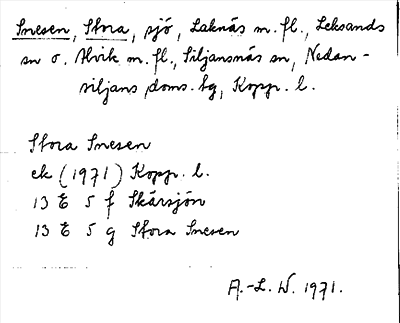 Snesen, Stora, sjö, Laknäs m.fl., Leksands
sn o. Alvik m.fl., Siljansnäs sn, Nedan-
siljans doms. hg, Kopp. l.
Stora Snesen
ek (1971) Kopp. l.
13 E 5 f Skärsjön
13 E 5 g Stora Snesen
A.-L. W. 1971.